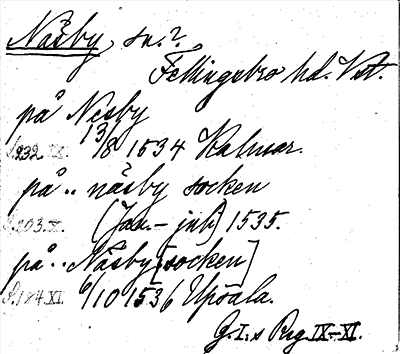 Näsby, sn.?
Fellingsbro hd. Vstm.
på Nesby
S. 232 IX. 13/8 1534 Kalmar.
på .. näsby socken
S. 203. X. (Jan. - juli) 1535.
på .. Näsby [socken]
S. 184. XI. 6/10 1536 Upsala.
G. I:s Reg IX-XI.